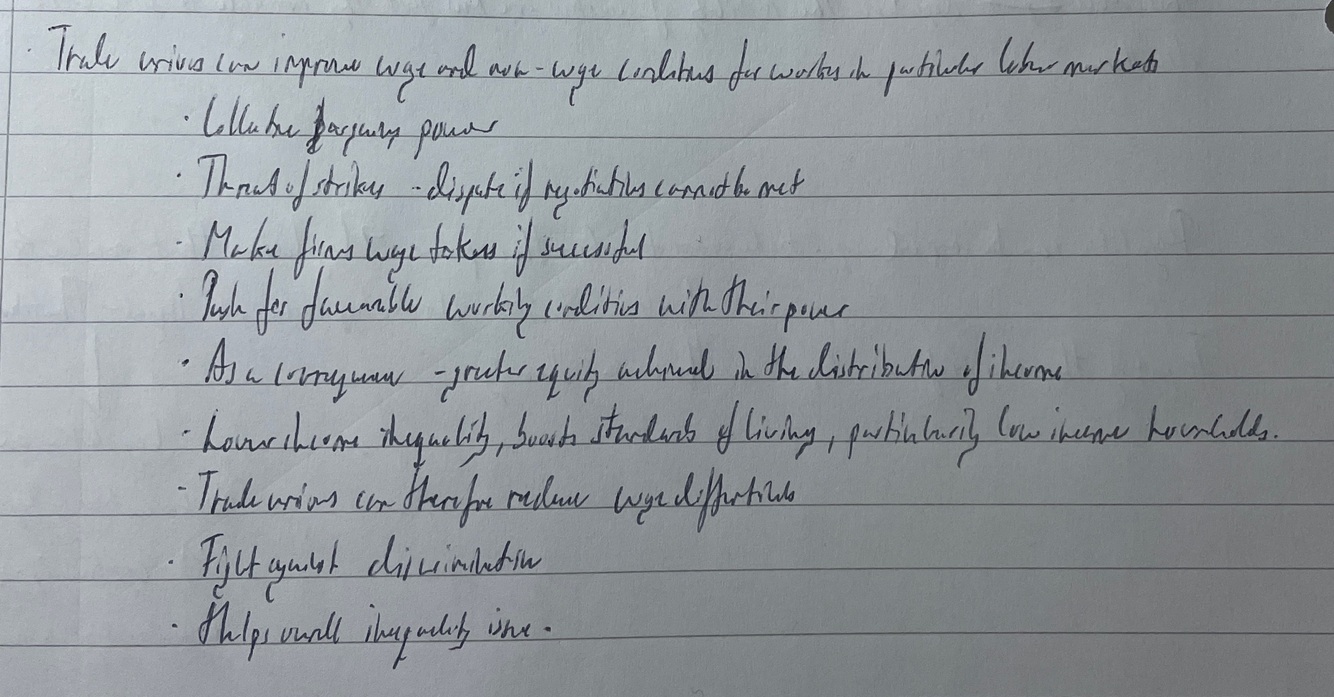 · Trade unions can improve wage and non-wage conditions for workers in particular labour markets
· Collective bargaining power
· Threat of strikes - dispute if negotiations cannot be met
· Make firms wage takers if successful
· Push for favourable working conditions with their power
· As a consequence - greater equity achieved in the distribution of income
· Lower income inequality, boosts standards of living, particularily low income households.
- Trade unions can therefore reduce wage differentials
· Fight against discrimination
· Helps overall inequality issue.